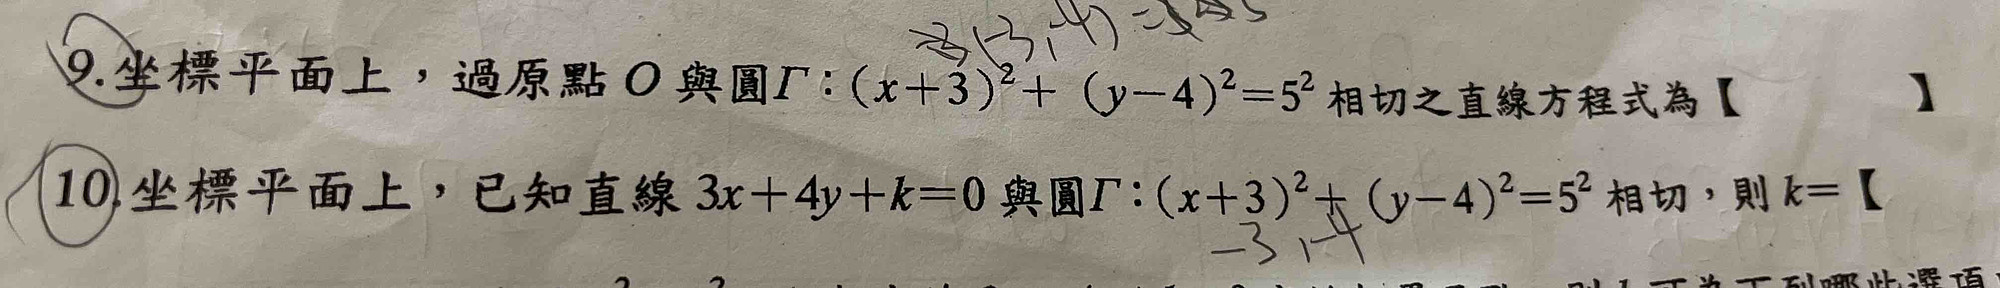 (-3,-4)
9.坐標平面上，過原點 O 與圓Γ：(x+3)²+ (y-4)²=5² 相切之直線方程式為【 】
10.坐標平面上，已知直線 3x+4y+k=0 與圓Γ：(x+3)²+ (y-4)²=5² 相切，則 k=【
-3,-4